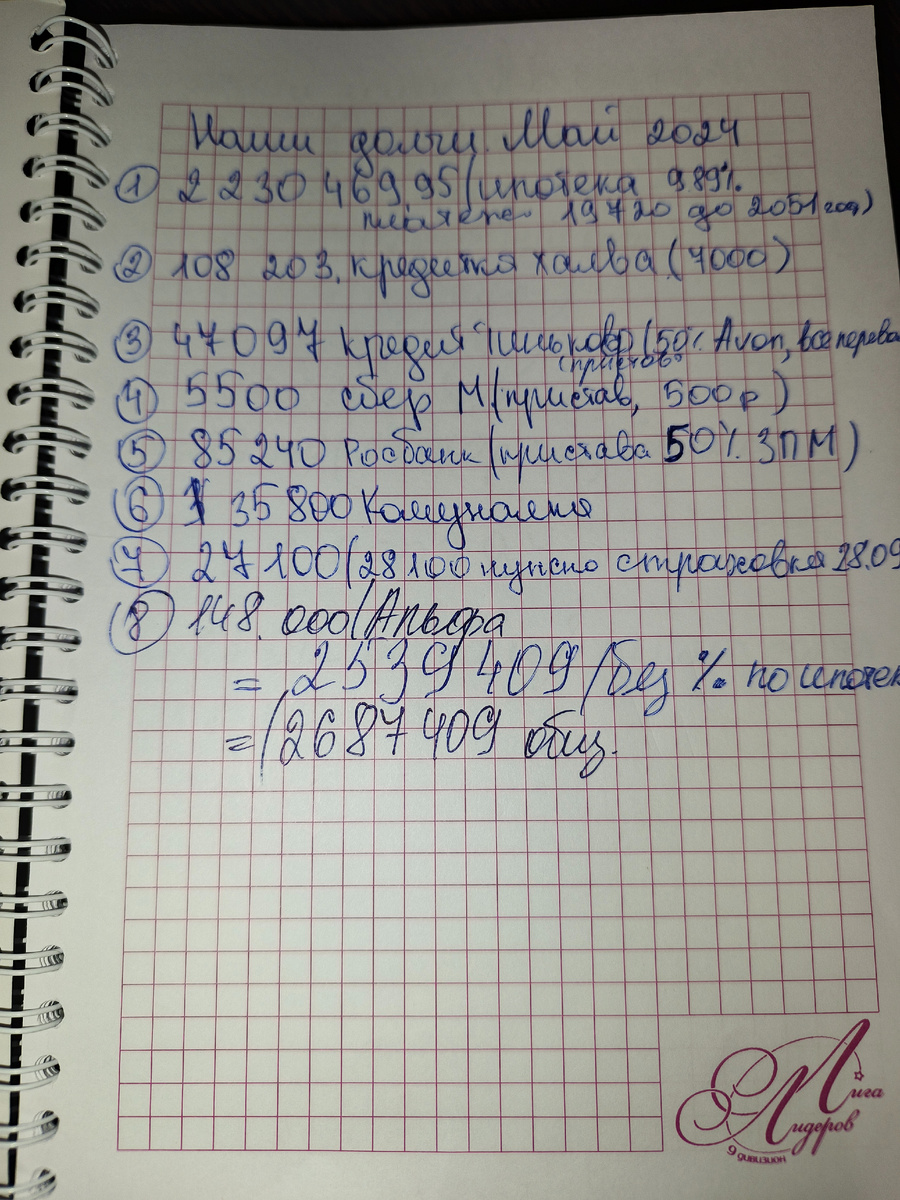 Наши долги Май 2024
① 2 230 469 95/ипотека 9 89%.
платеж 19720 до 2051 год)
② 108 203. кредитка халва (7000)
③ 47097 кредит Тиньков (50% Avon, все перева
(пристав
④ 5500 сбер М (пристав, 500 р)
⑤ 85240 Росбанк (пристава 50% ЗП М)
⑥ 35 800 Комуналка
⑦ 27 100 (28 100 нужно страховка 28.09
⑧ 148.000 (Альфа
= 2539 409 /без % по ипотек
= (2687409 общ.
Лига
Лидеров
9 дивизион